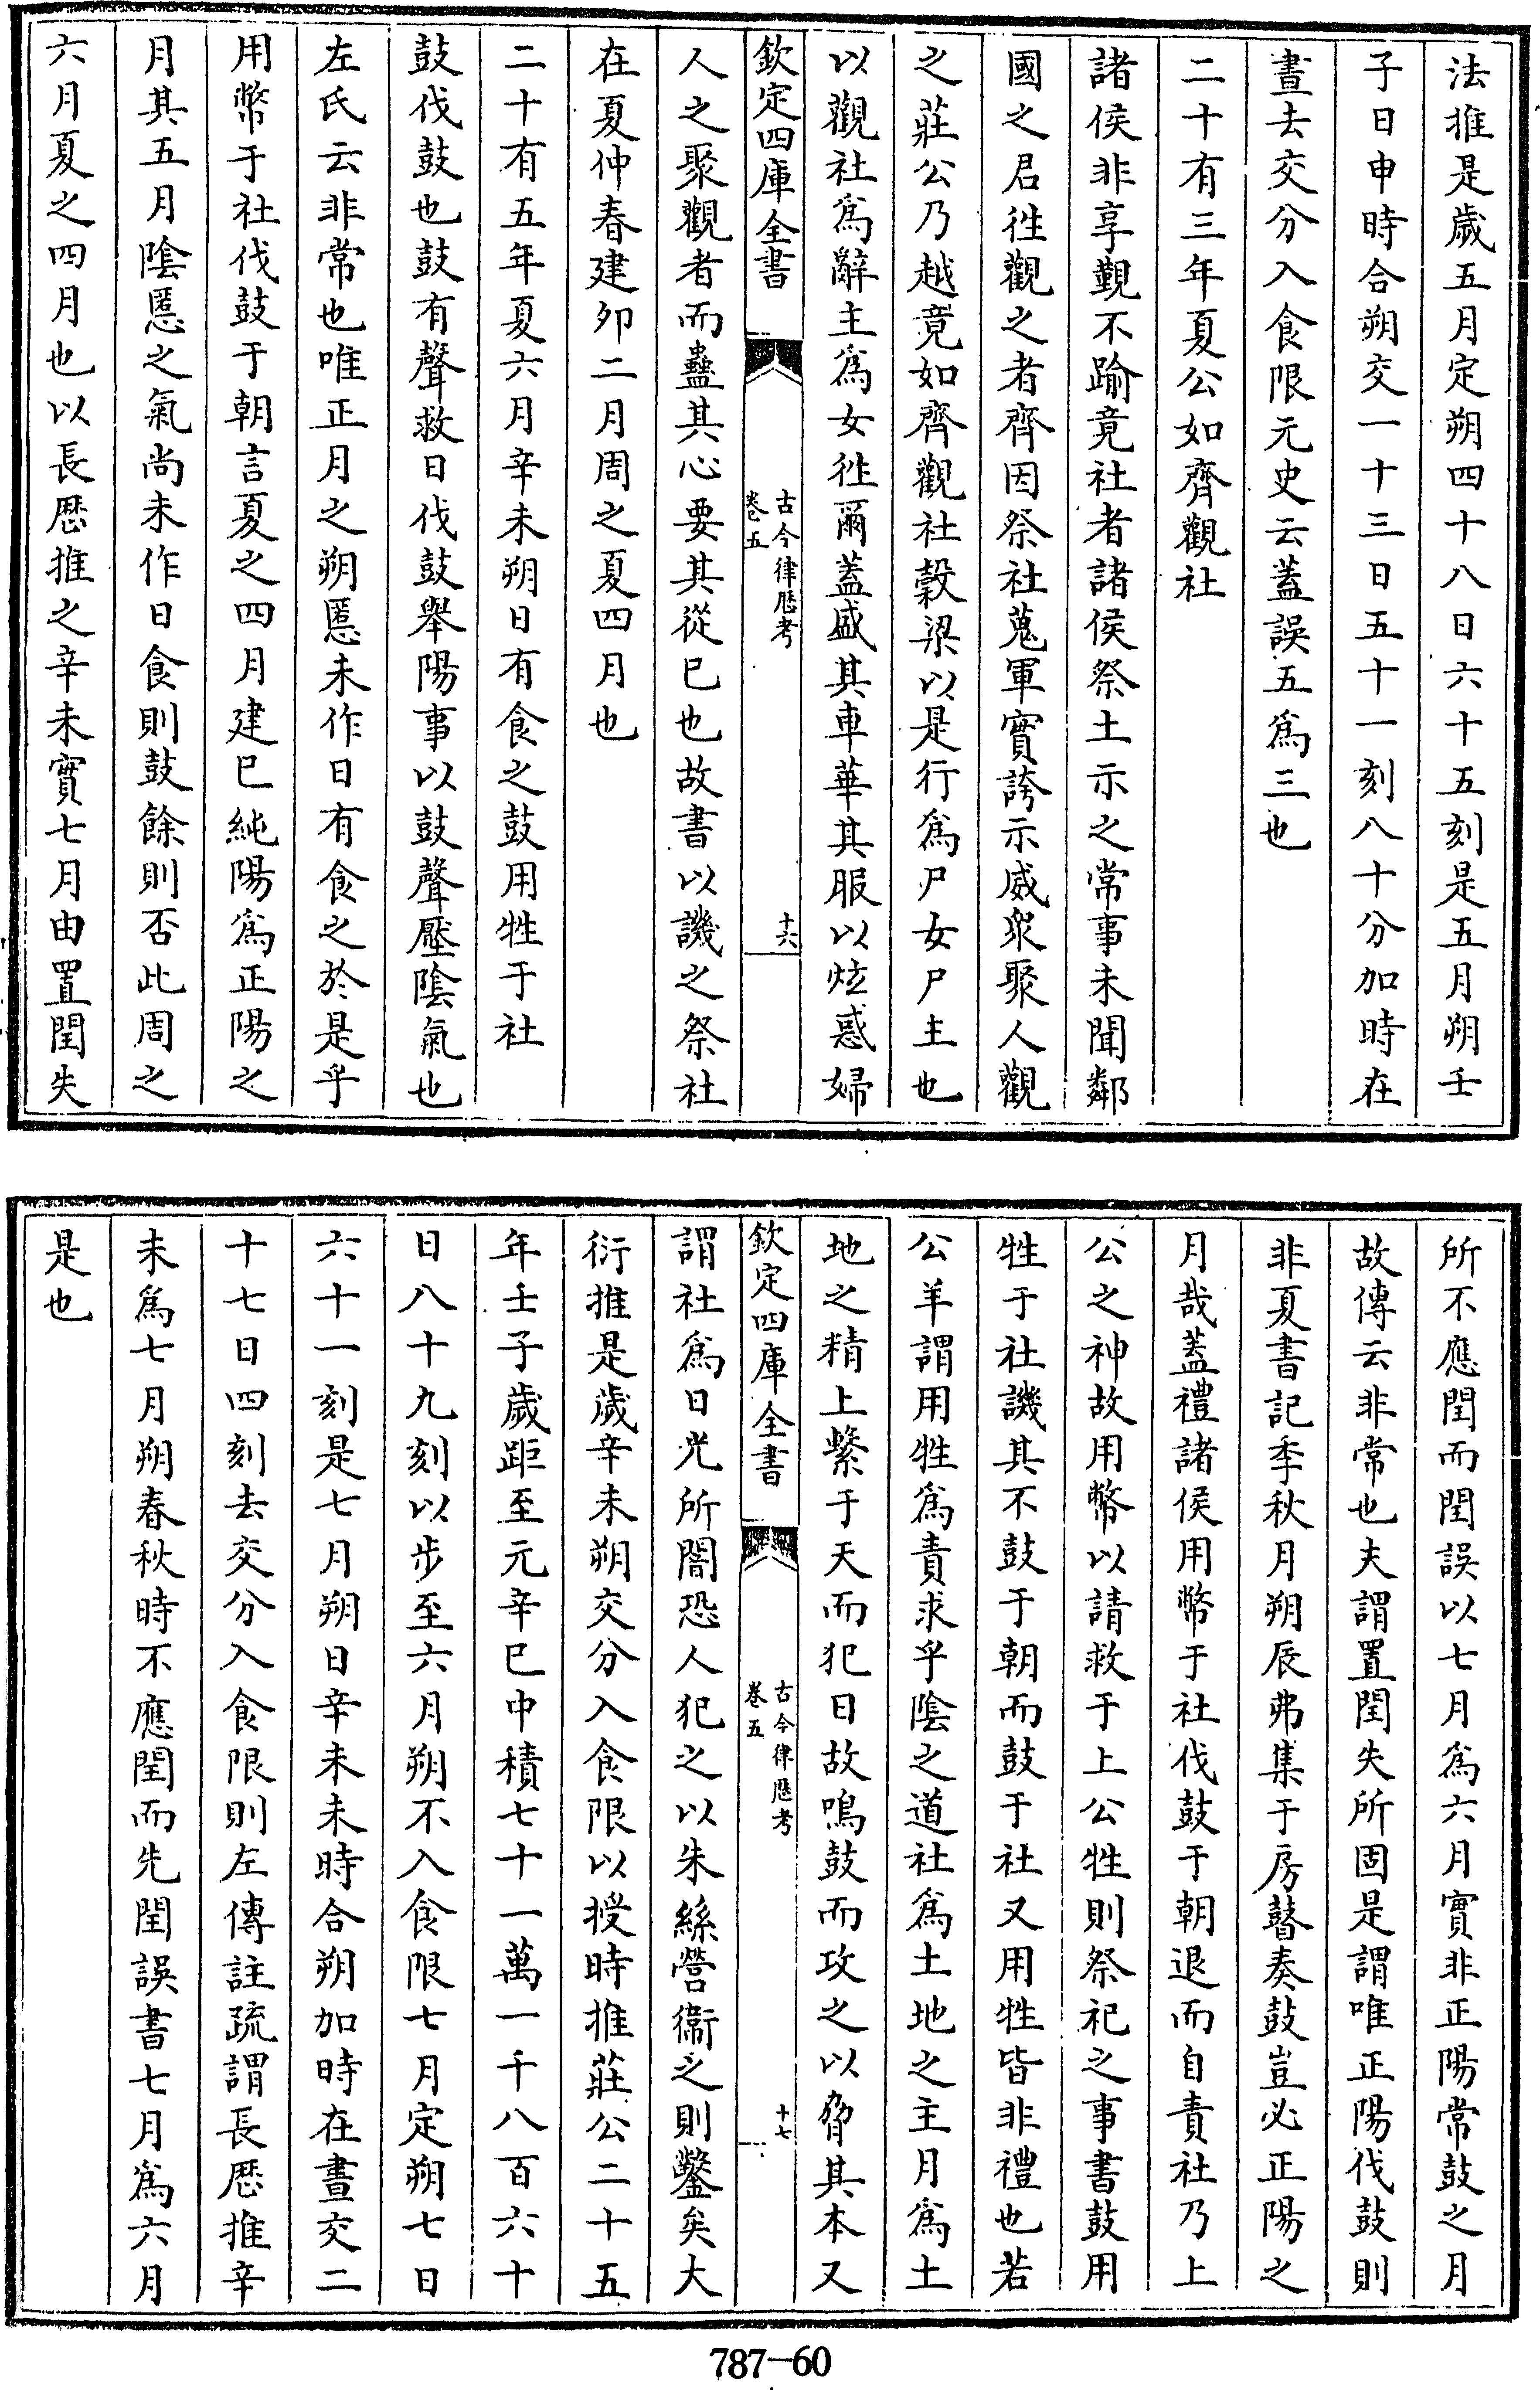 法推是歲五月定朔四十八日六十五刻是五月朔壬
子日申時合朔交一十三日五十一刻八十分加時在
晝去交分入食限元史云蓋誤五爲三也
二十有三年夏公如齊觀社
諸侯非享覲不踰竟社者諸侯祭土示之常事未聞鄰
國之君徃觀之者齊因祭社蒐軍實誇示威衆聚人觀
之莊公乃越竟如齊觀社穀梁以是行爲尸女尸主也
以觀社爲辭主爲女徃爾蓋盛其車華其服以炫惑婦
欽定四庫全書
古今律厯考
卷五
十六
人之聚觀者而蠱其心要其從已也故書以譏之祭社
在夏仲春建夘二月周之夏四月也
二十有五年夏六月辛未朔日有食之鼓用牲于社
鼓伐鼓也鼓有聲救日伐鼓舉陽事以鼓聲壓陰氣也
左氏云非常也唯正月之朔慝未作日有食之於是乎
用幣于社伐鼓于朝言夏之四月建巳純陽爲正陽之
月其五月陰慝之氣尚未作日食則鼓餘則否此周之
六月夏之四月也以長厯推之辛未實七月由置閏失
所不應閏而閏誤以七月爲六月實非正陽常鼓之月
故傳云非常也夫謂置閏失所固是謂唯正陽伐鼓則
非夏書記季秋月朔辰弗集于房瞽奏鼓豈必正陽之
月哉蓋禮諸侯用幣于社伐鼓于朝退而自責社乃上
公之神故用幣以請救于上公牲則祭祀之事書鼓用
牲于社譏其不鼓于朝而鼓于社又用牲皆非禮也若
公羊謂用牲爲責求乎陰之道社爲土地之主月爲土
地之精上繫于天而犯日故鳴鼓而攻之以脅其本又
欽定四庫全書
古今律厯考
卷五
十七
謂社爲日光所闇恐人犯之以朱絲營衞之則鑿矣大
衍推是歲辛未朔交分入食限以授時推莊公二十五
年壬子歲距至元辛巳中積七十一萬一千八百六十
日八十九刻以步至六月朔不入食限七月定朔七日
六十一刻是七月朔日辛未未時合朔加時在晝交二
十七日四刻去交分入食限則左傳註疏謂長厯推辛
未爲七月朔春秋時不應閏而先閏誤書七月爲六月
是也
787-60